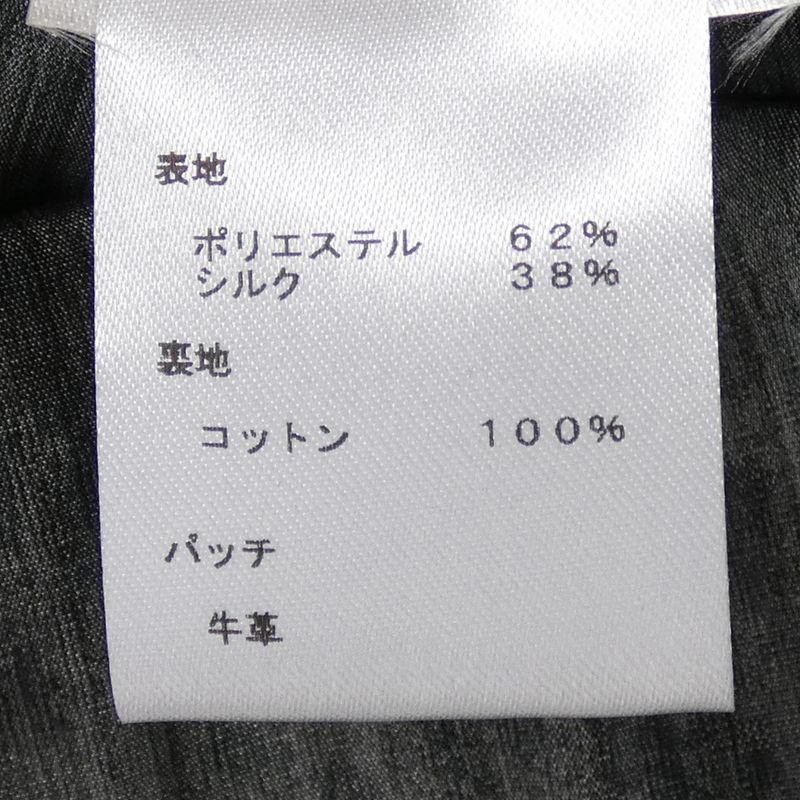 表地
ポリエステル　６２％
シルク　３８％
裏地
コットン　１００％
パッチ
牛革